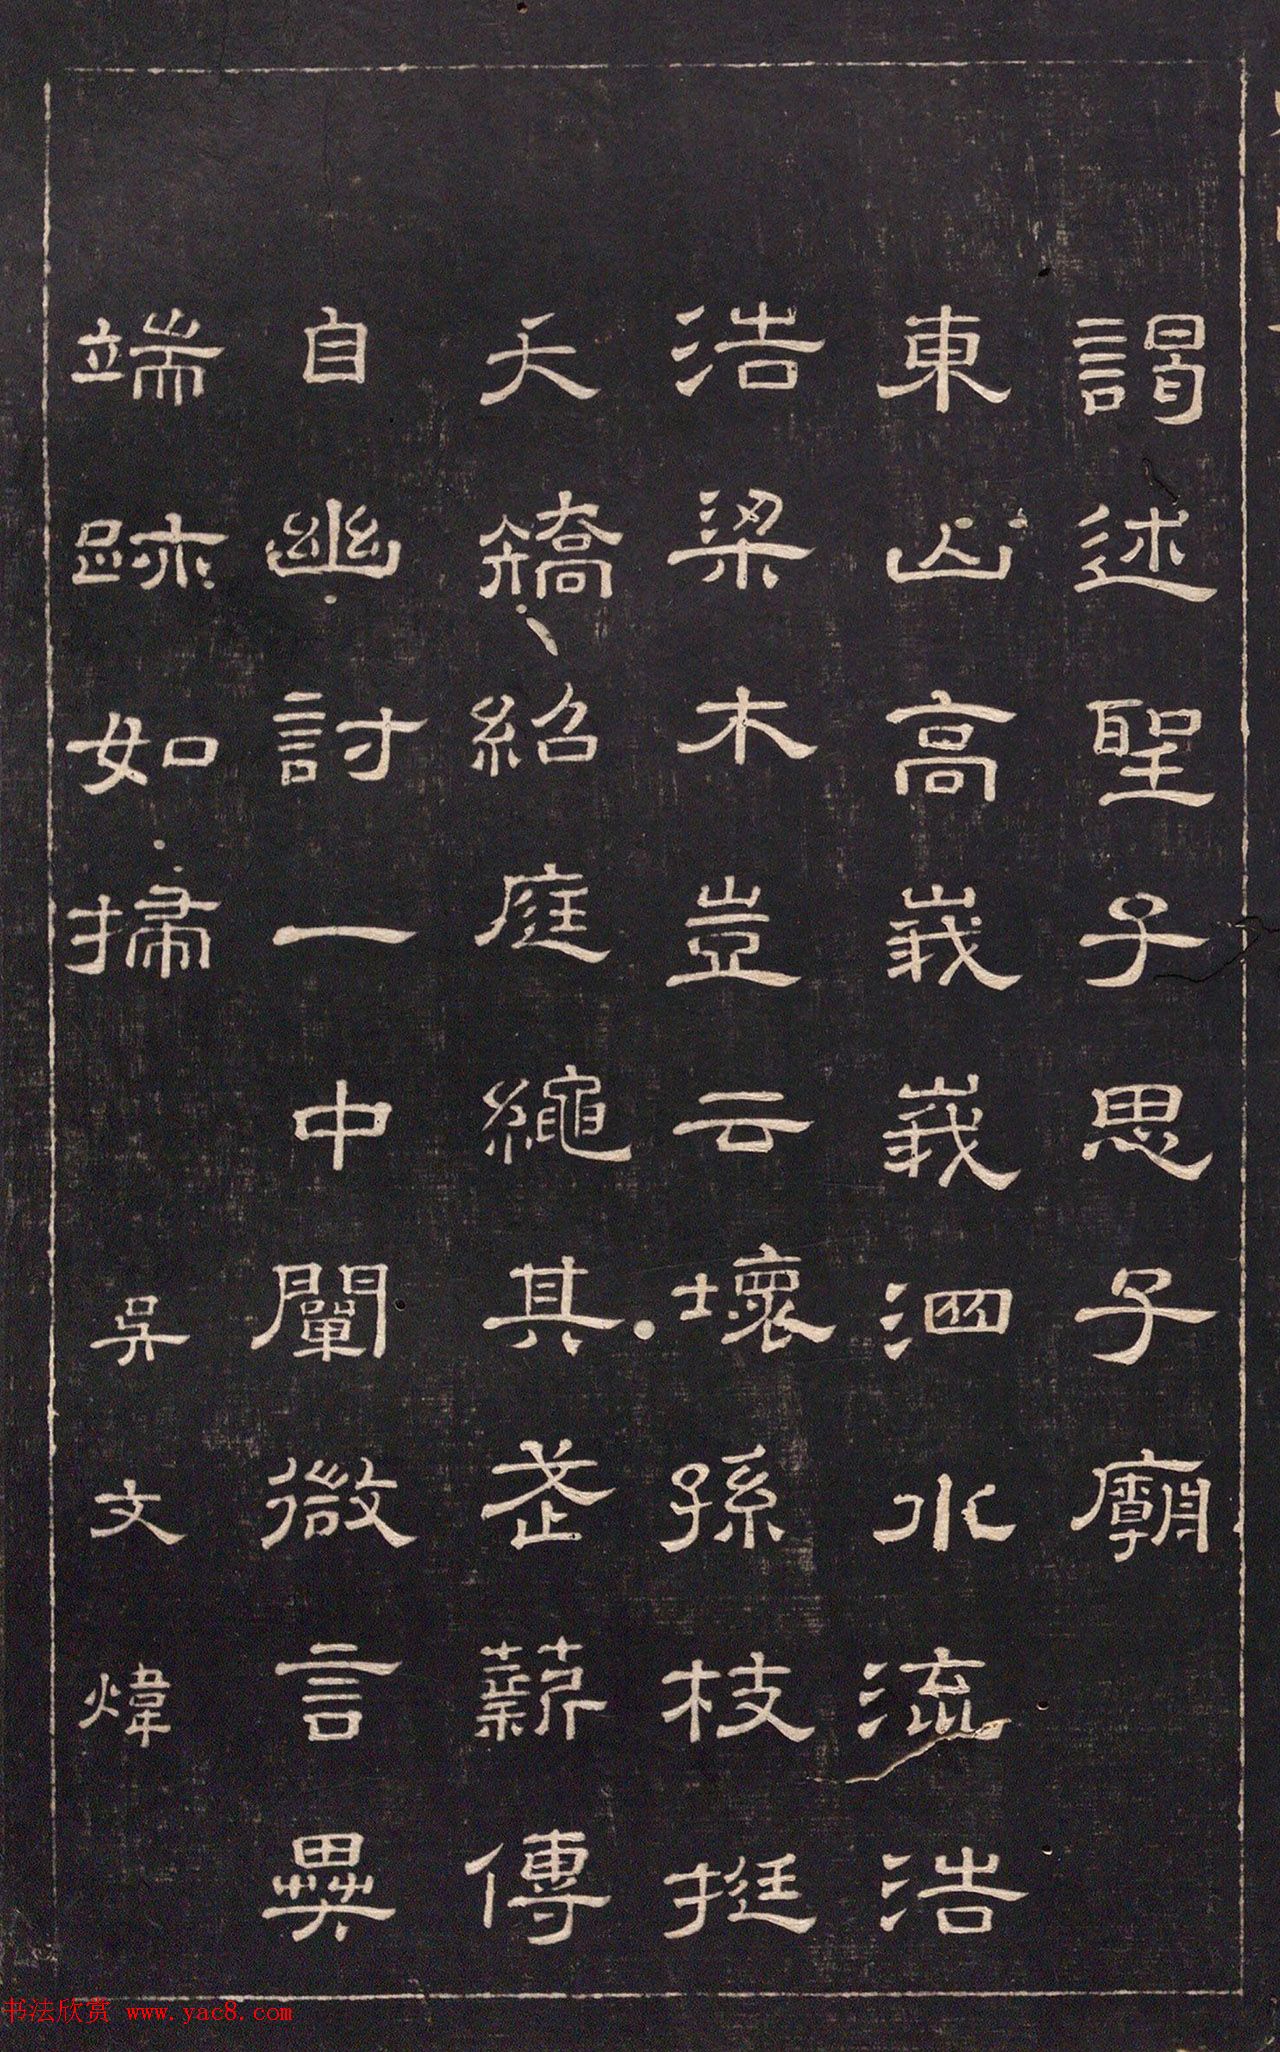 謁述聖子思子廟
東山高峩峩泗水流浩
浩梁木豈云壞孫枝挺
夭矯紹庭繩其武薪傳
自幽討一中闡微言異
端跡如掃 吳文煒
书法欣赏 www.yac8.com